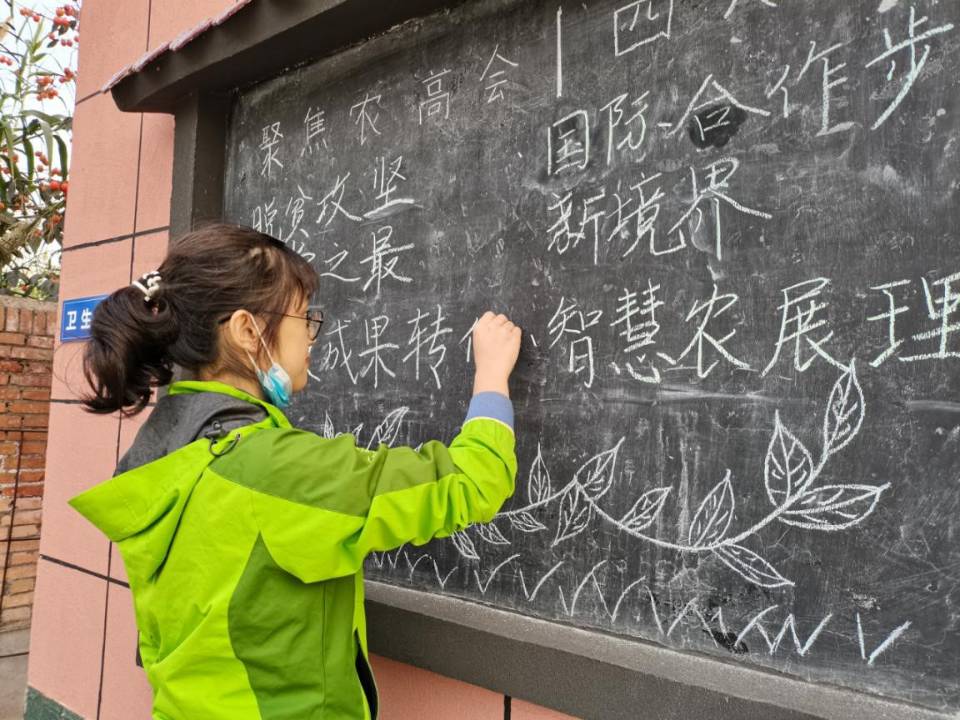 聚焦农高会
脱贫攻坚
之最
成果转
十四
国际合作步
新境界
智慧农展理
卫生